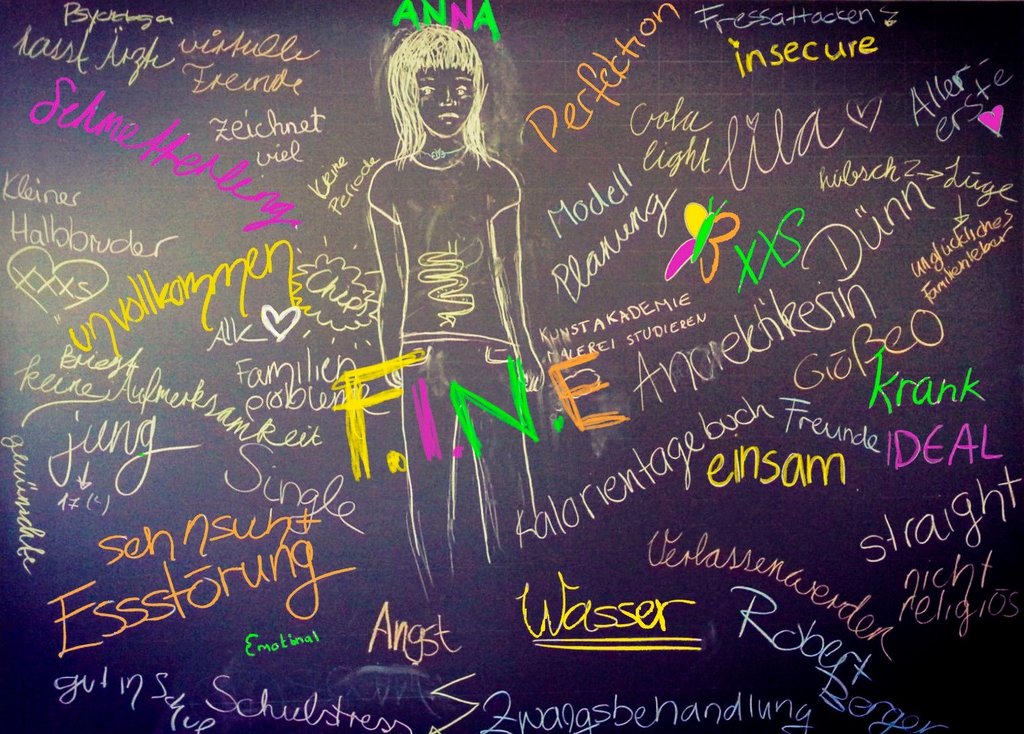 ANNA
Psychologen
hasst Ärzte
virtuelle
Freunde
Perfektion
Fressattacken
insecure
Schmetterling
zeichnet
viel
keine
Periode
Cola
light
lila
Aller
erste
hübsch → Lüge
unglückliches
Familienleben
Kleiner
Halbbruder
xxxs
Modell
Planung
XXS
Dünn
unvollkommen
Chips
Alk
KUNSTAKADEMIE
MALEREI STUDIEREN
Anorektikerin
Größe 0
Krank
Kriegt
keine Aufmerksamkeit
Familien
probleme
F.I.N.E
jung
17 (-)
Single
Kalorientagebuch
Freunde
IDEAL
einsam
straight
sehnsucht
Essstörung
Emotinal
Angst
Wasser
Verlassenwerden
nicht
religiös
Robert
Berger
gut in Schule
Schulstress
Zwangsbehandlung